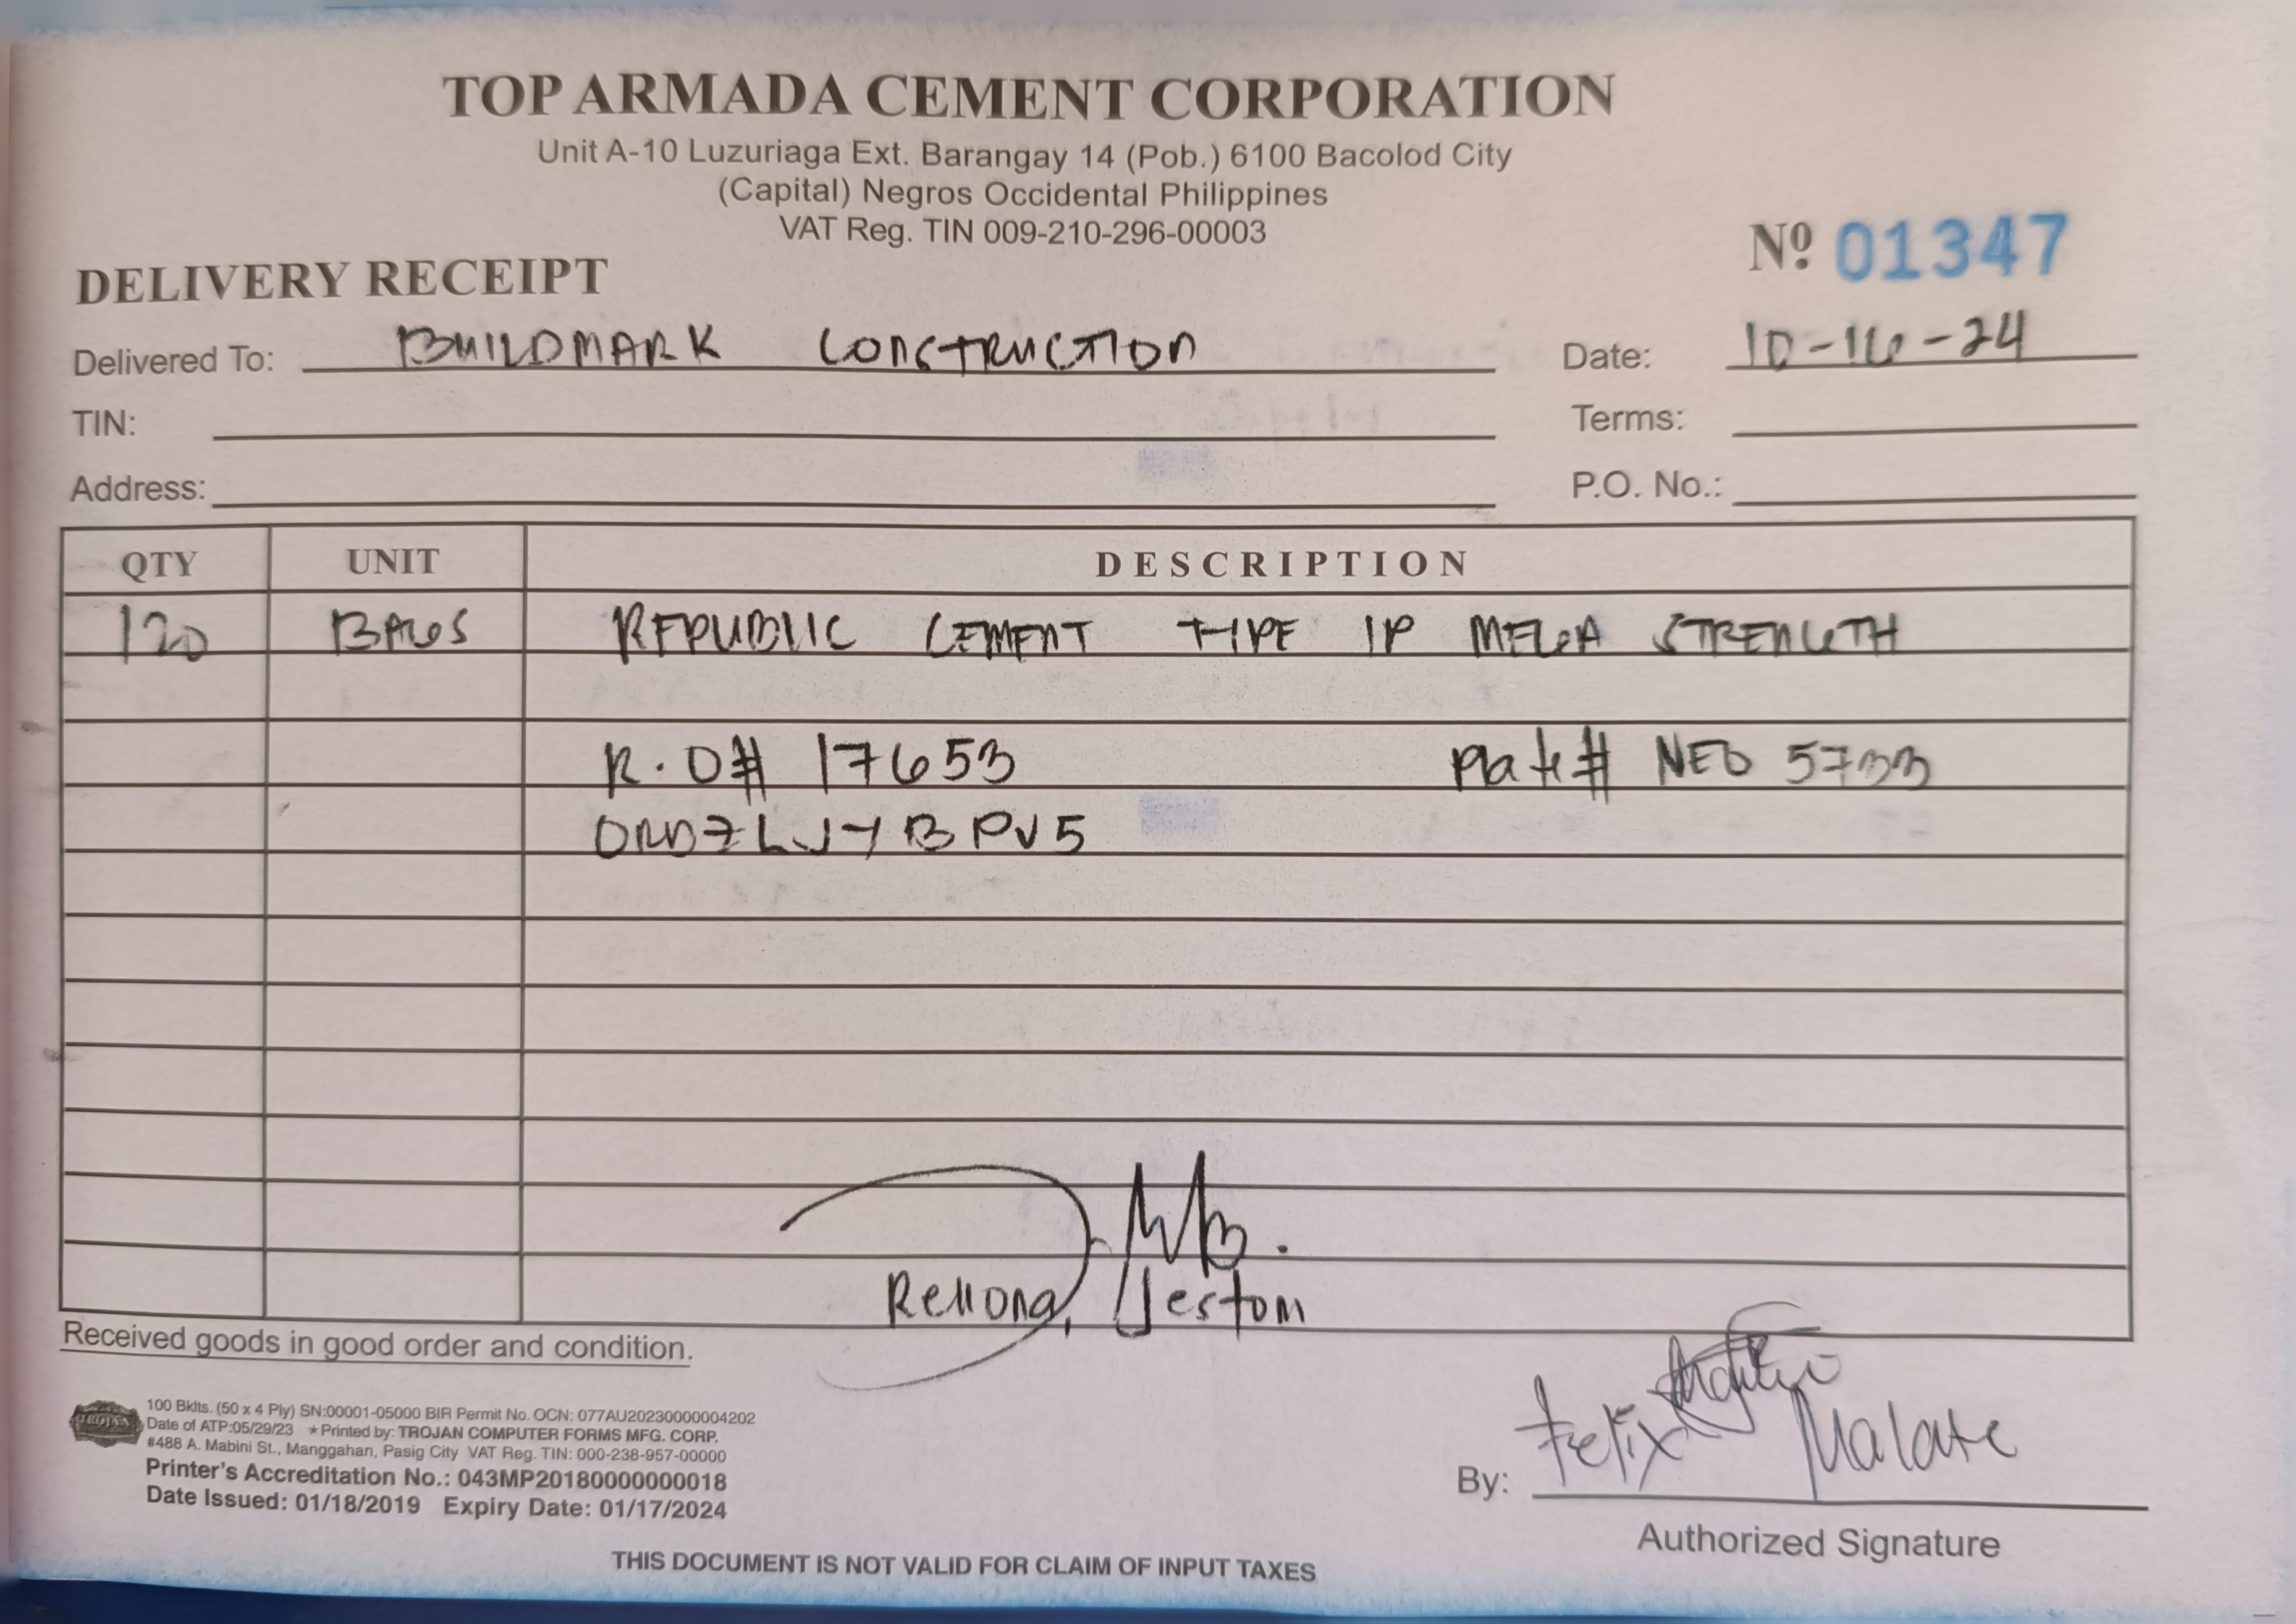 TOP ARMADA CEMENT CORPORATION
Unit A-10 Luzuriaga Ext. Barangay 14 (Pob.) 6100 Bacolod City
(Capital) Negros Occidental Philippines
VAT Reg. TIN 009-210-296-00003
Nº 01347
DELIVERY RECEIPT
Delivered To: BUILDMARK CONSTRUCTION Date: 10-16-24
TIN: Terms:
Address: P.O. No.:
QTY UNIT DESCRIPTION
120 BAGS REPUBLIC CEMENT TYPE 1P MEGA STRENGTH
R.O# 17653 Plate# NEO 5733
Jestoni
Received goods in good order and condition.
Felix Malate
By:
Authorized Signature
TROJAN
100 Bklts. (50 x 4 Ply) SN:00001-05000 BIR Permit No. OCN: 077AU20230000004202
Date of ATP:05/29/23 ★Printed by: TROJAN COMPUTER FORMS MFG. CORP.
#488 A. Mabini St., Manggahan, Pasig City VAT Reg. TIN: 000-238-957-00000
Printer's Accreditation No.: 043MP20180000000018
Date Issued: 01/18/2019 Expiry Date: 01/17/2024
THIS DOCUMENT IS NOT VALID FOR CLAIM OF INPUT TAXES